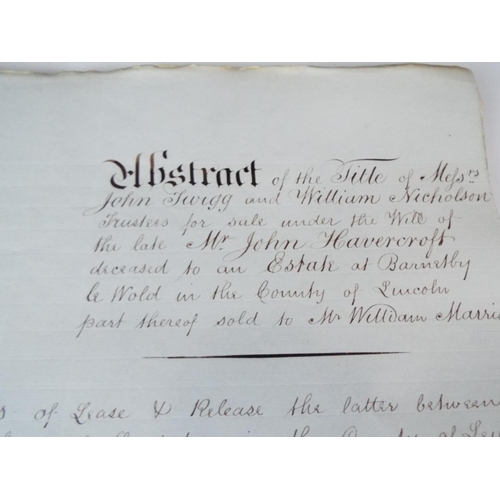 Abstract of the Title of Messrs
John Twigg and William Nicholson
Trustees for sale under the Will of
the late Mr John Havercroft
deceased to an Estate at Barnetby
le Wold in the County of Lincoln
part thereof sold to Mr William Marris
of Lease & Release the latter between
the County of